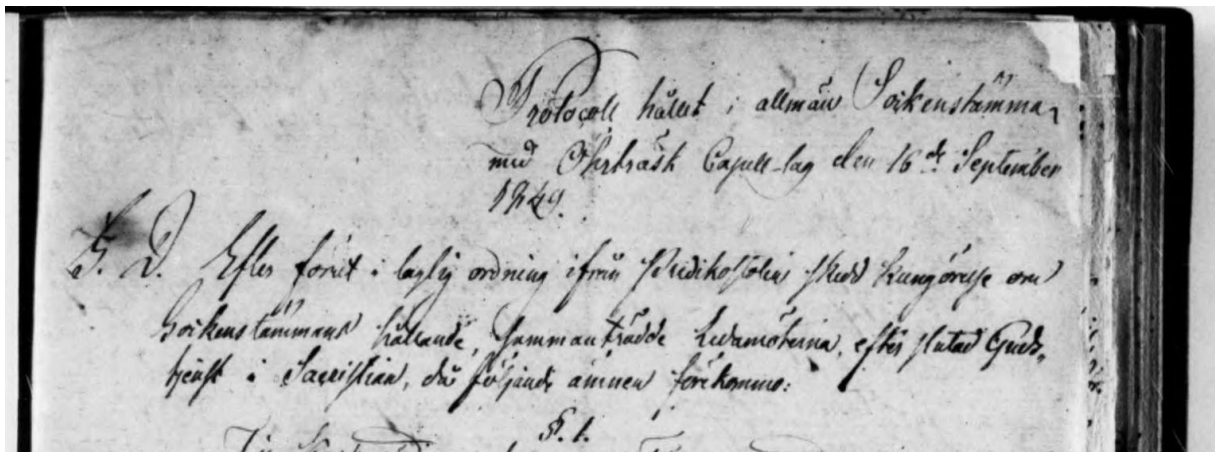 Protocoll hållet i allmän Sockenstämma,
med Örträsk Capell-lag den 16de September
1849.
S. D. Efter förut i laglig ordning ifrån Predikostolen skedd kungörelse om
Sockenstämmans hållande, sammanträdde Ledamöterna, efter slutad Guds-
tjenst i Sacristian, då följande ämnen förekommo:
§. 1.